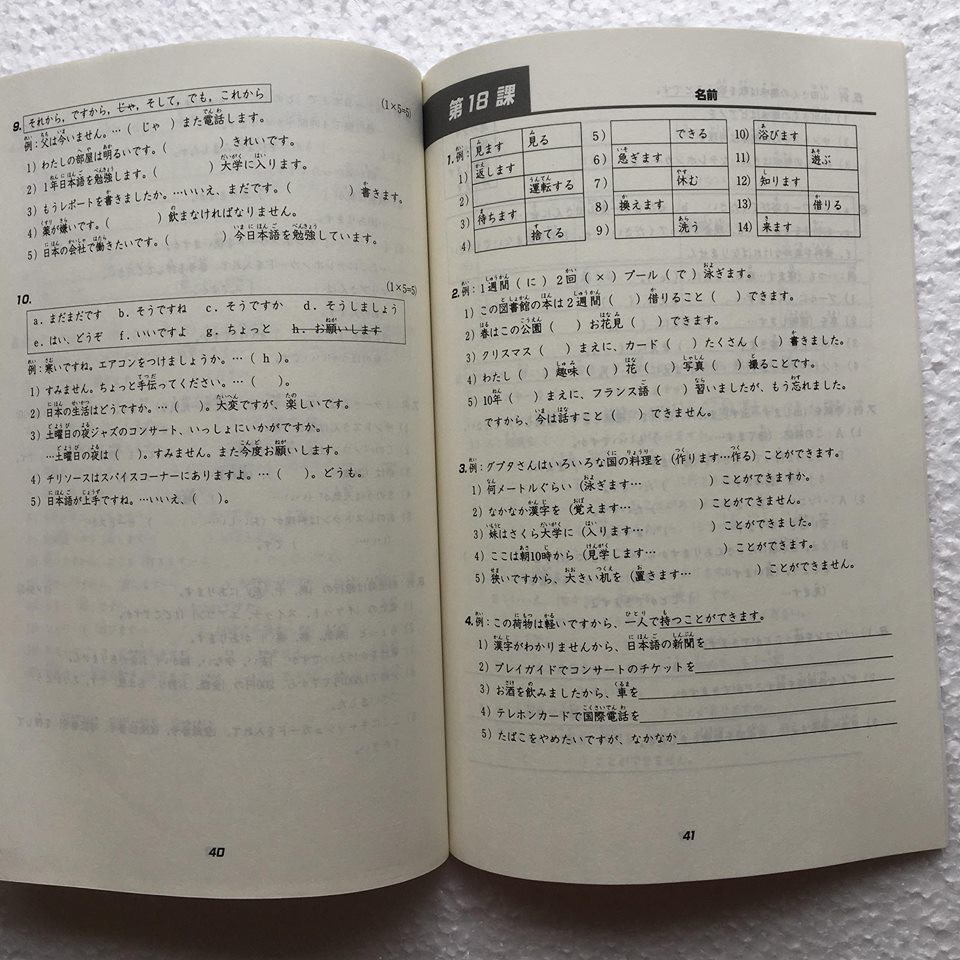 9. それから，ですから，じゃ，そして，でも，これから
(1×5=5)
例：父は今いません。…（ じゃ ）また電話します。
1）わたしの部屋は明るいです。（ ）きれいです。
2）1年日本語を勉強します。（ ）大学に入ります。
3）もうレポートを書きましたか。…いいえ、まだです。（ ）書きます。
4）薬が嫌いです。（ ）飲まなければなりません。
5）日本の会社で働きたいです。（ ）今日本語を勉強しています。
10.
(1×5=5)
a．まだまだです b．そうですね c．そうですか d．そうしましょう
e．はい、どうぞ f．いいですよ g．ちょっと h．お願いします
例：寒いですね。エアコンをつけましょうか。…（ h ）。
1）すみません。ちょっと手伝ってください。…（ ）。
2）日本の生活はどうですか。…（ ）。大変ですが、楽しいです。
3）土曜日の夜ジャズのコンサート、いっしょにいかがですか。
…土曜日の夜は（ ）。すみません。また今度お願いします。
4）チリソースはスパイスコーナーにありますよ。…（ ）。どうも。
5）日本語が上手ですね。…いいえ、（ ）。
40
第18課
名前
1. 例： 見ます 見る 5） できる 10） 浴びます
1） 返します 6） 急ぎます 11） 遊ぶ
2） 運転する 7） 休む 12） 知ります
3） 待ちます 8） 換えます 13） 借りる
4） 捨てる 9） 洗う 14） 来ます
2. 例：1週間（ に ）2回（ × ）プール（ で ）泳ぎます。
1）この図書館の本は2週間（ ）借りること（ ）できます。
2）春はこの公園（ ）お花見（ ）できます。
3）クリスマス（ ）まえに、カード（ ）たくさん（ ）書きました。
4）わたし（ ）趣味（ ）花（ ）写真（ ）撮ることです。
5）10年（ ）まえに、フランス語（ ）習いましたが、もう忘れました。
ですから、今は話すこと（ ）できません。
3. 例：グプタさんはいろいろな国の料理を（作ります…作る）ことができます。
1）何メートルぐらい（泳ぎます… ）ことができますか。
2）なかなか漢字を（覚えます… ）ことができません。
3）妹はさくら大学に（入ります… ）ことができました。
4）ここは朝10時から（見学します… ）ことができます。
5）狭いですから、大きい机を（置きます… ）ことができません。
4. 例：この荷物は軽いですから、一人で持つことができます。
1）漢字がわかりませんから、日本語の新聞を
2）プレイガイドでコンサートのチケットを
3）お酒を飲みましたから、車を
4）テレホンカードで国際電話を
5）たばこをやめたいですが、なかなか
41